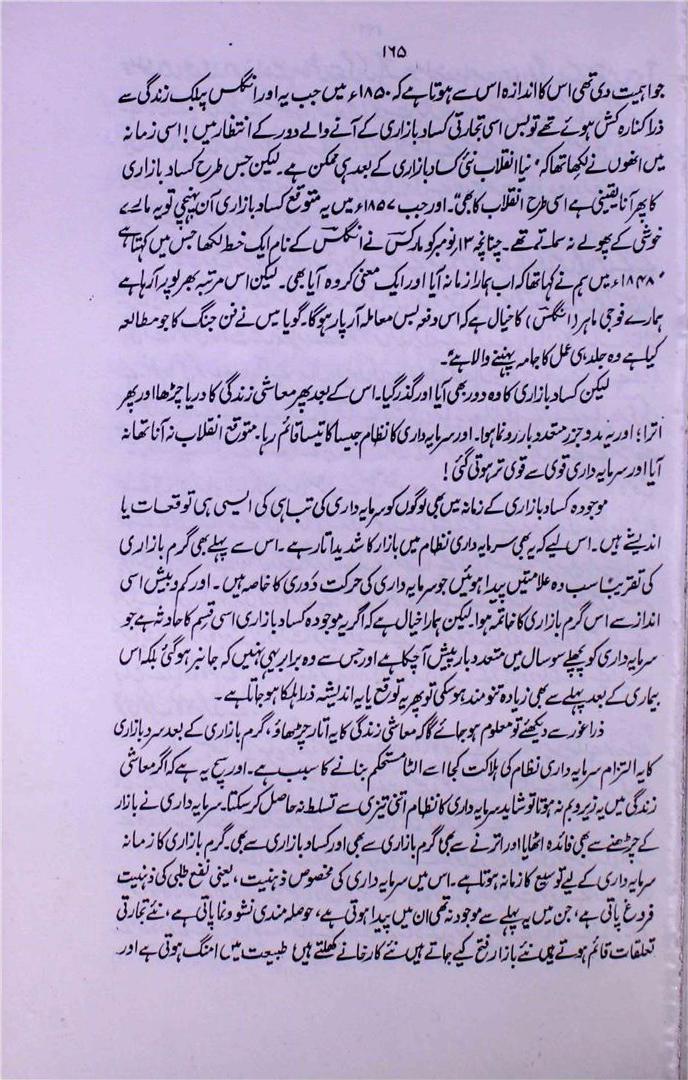 ۱۶۵
جو اہمیت دی تھی اس کا اندازہ اس سے ہوتا ہے کہ ۱۸۵۰ء میں جب یہ اور انگلس پبلک زندگی سے
ذرا کنارہ کش ہوئے تھے تو بس اسی تجارتی کساد بازاری کے آنے والے دور کے انتظار میں! اسی زمانہ
میں انھوں نے لکھا تھا کہ "نیا انقلاب نئی کساد بازاری کے بعد ہی ممکن ہے۔ لیکن جس طرح کساد بازاری
کا پھر آنا یقینی ہے اسی طرح انقلاب کا بھی"۔ اور جب ۱۸۵۷ء میں یہ متوقع کساد بازاری آن پہنچی تو یہ مارے
خوشی کے پھولے نہ سماتے تھے۔ چنانچہ ۱۳ نومبر کو مارکس نے انگلس کے نام ایک خط لکھا جس میں کہتا ہے
"۱۸۴۸ء میں ہم نے کہا تھا کہ اب ہمارا زمانہ آیا اور ایک معنی کر وہ آیا بھی۔ لیکن اس مرتبہ بھرپور آ رہا ہے
ہمارے فوجی ماہر (انگلس) کا خیال ہے کہ اس دفعہ بس معاملہ آر پار ہوگا۔ گویا میں نے فن جنگ کا جو مطالعہ
کیا ہے وہ جلد ہی عمل کا جامہ پہننے والا ہے"۔
لیکن کساد بازاری کا وہ دور بھی آیا اور گذر گیا۔ اس کے بعد پھر معاشی زندگی کا دریا چڑھا اور پھر
اترا؛ اور یہ مد و جزر متعدد بار رونما ہوا۔ اور سرمایہ داری کا نظام جیسا کا تیسا قائم رہا۔ متوقع انقلاب نہ آنا تھا نہ
آیا اور سرمایہ داری قوی سے قوی تر ہوتی گئی!
موجودہ کساد بازاری کے زمانہ میں بھی لوگوں کو سرمایہ داری کی تباہی کی ایسی ہی توقعات یا
اندیشے ہیں۔ اس لیے کہ یہ بھی سرمایہ داری نظام میں بازار کا شدید اتار ہے۔ اس سے پہلے بھی گرم بازاری
کی تقریباً سب وہ علامتیں پیدا ہوئیں جو سرمایہ داری کی حرکت دوری کا خاصہ ہیں۔ اور کم و بیش اسی
انداز سے اس گرم بازاری کا خاتمہ ہوا۔ لیکن ہمارا خیال ہے کہ اگر یہ موجودہ کساد بازاری اسی قسم کا حادثہ ہے جو
سرمایہ داری کو پچھلے سو سال میں متعدد بار پیش آچکا ہے اور جس سے وہ برابر یہی نہیں کہ جانبر ہوگئی بلکہ اس
بیماری کے بعد پہلے سے بھی زیادہ تنومند ہو سکی تو پھر یہ توقع یا یہ اندیشہ ذرا ہلکا ہو جاتا ہے۔
ذرا غور سے دیکھئے تو معلوم ہو جائے گا کہ معاشی زندگی کا یہ اتار چڑھاؤ، گرم بازاری کے بعد سرد بازاری
کا یہ التزام سرمایہ داری نظام کی ہلاکت کجا اسے الٹا مستحکم بنانے کا سبب ہے۔ اور سچ یہ ہے کہ اگر معاشی
زندگی میں یہ زیر و بم نہ ہوتا تو شاید سرمایہ داری کا نظام اتنی تیزی سے تسلط نہ حاصل کر سکتا۔ سرمایہ داری نے بازار
کے چڑھنے سے بھی فائدہ اٹھایا اور اترنے سے بھی گرم بازاری سے بھی اور کساد بازاری سے بھی۔ گرم بازاری کا زمانہ
سرمایہ داری کے لیے توسیع کا زمانہ ہوتا ہے۔ اس میں سرمایہ داری کی مخصوص ذہنیت، یعنی نفع طلبی کی ذہنیت
فروغ پاتی ہے، جن میں یہ پہلے سے موجود نہ تھی ان میں پیدا ہوتی ہے، حوصلہ مندی نشو و نما پاتی ہے، نئے تجارتی
تعلقات قائم ہوتے ہیں نئے بازار فتح کیے جاتے ہیں نئے کارخانے کھلتے ہیں طبیعت میں امنگ ہوتی ہے اور